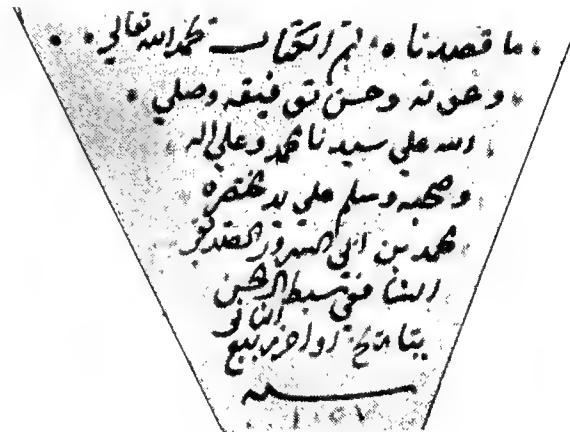 ما قصدناه تم الكتاب بحمد الله تعالي
وعونه وحسن توفيقه وصلي
الله علي سيدنا محمد وعلي اله
وصحبه وسلم علي يد محتصره
محمد بن ابي السرور
الشافعي سبط ال الحسن
بتاريخ اواخر ربيع الثاني
سنه
١٠٥٧